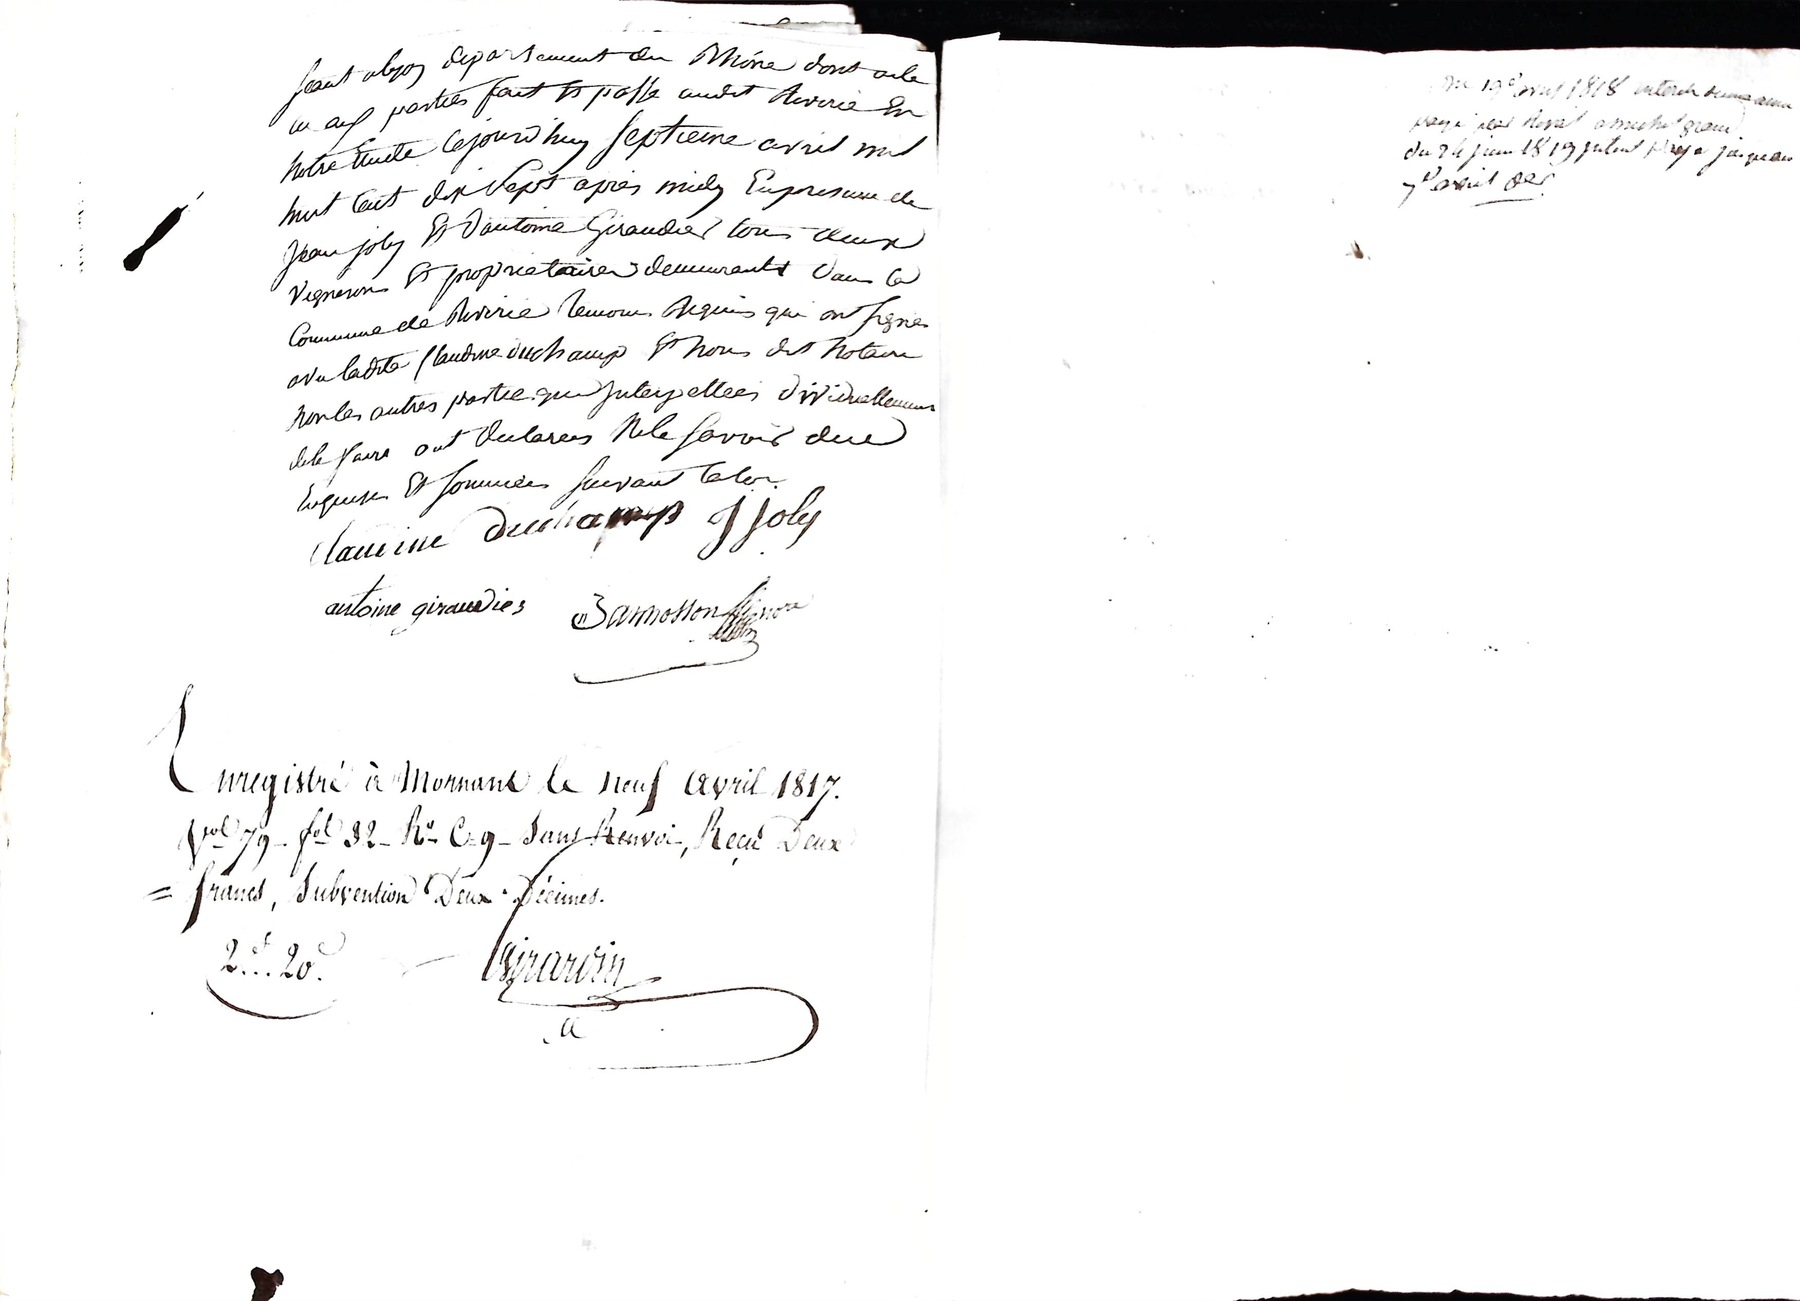 seant a lyon departement du Rhône dont acte
aux parties fait et passé audit Riverie En
notre Etude Cejourd'huy septieme avril mil
huit Cent dix Sept apres midy Enpresence de
Jean joly Et d'antoine Giraudier tous deux
Vignerons Et proprietaires demeurants dans la
Commune de Riverie temoins Requis qui ont signés
avec ladite Claudine duchamp Et nous dit Notaire
non les autres parties qui Interpellées dividuellement
dele faire ont declarées Nele Savoir dece
Enquises Et Sommées suivant laloi
Claudine duchamp J Joly
antoine giraudier
Enregistré à Mornant le neuf Avril 1817.
Vol 79 - fol 32 - Ro C. 9 - Sans Renvoi, Reçu Deux
= francs, Subvention Deux Décimes.
2f... 20c.
Girardin
Du 19 avril 1818
payé
du 24 juin 1819 jusqu'au
7 avril